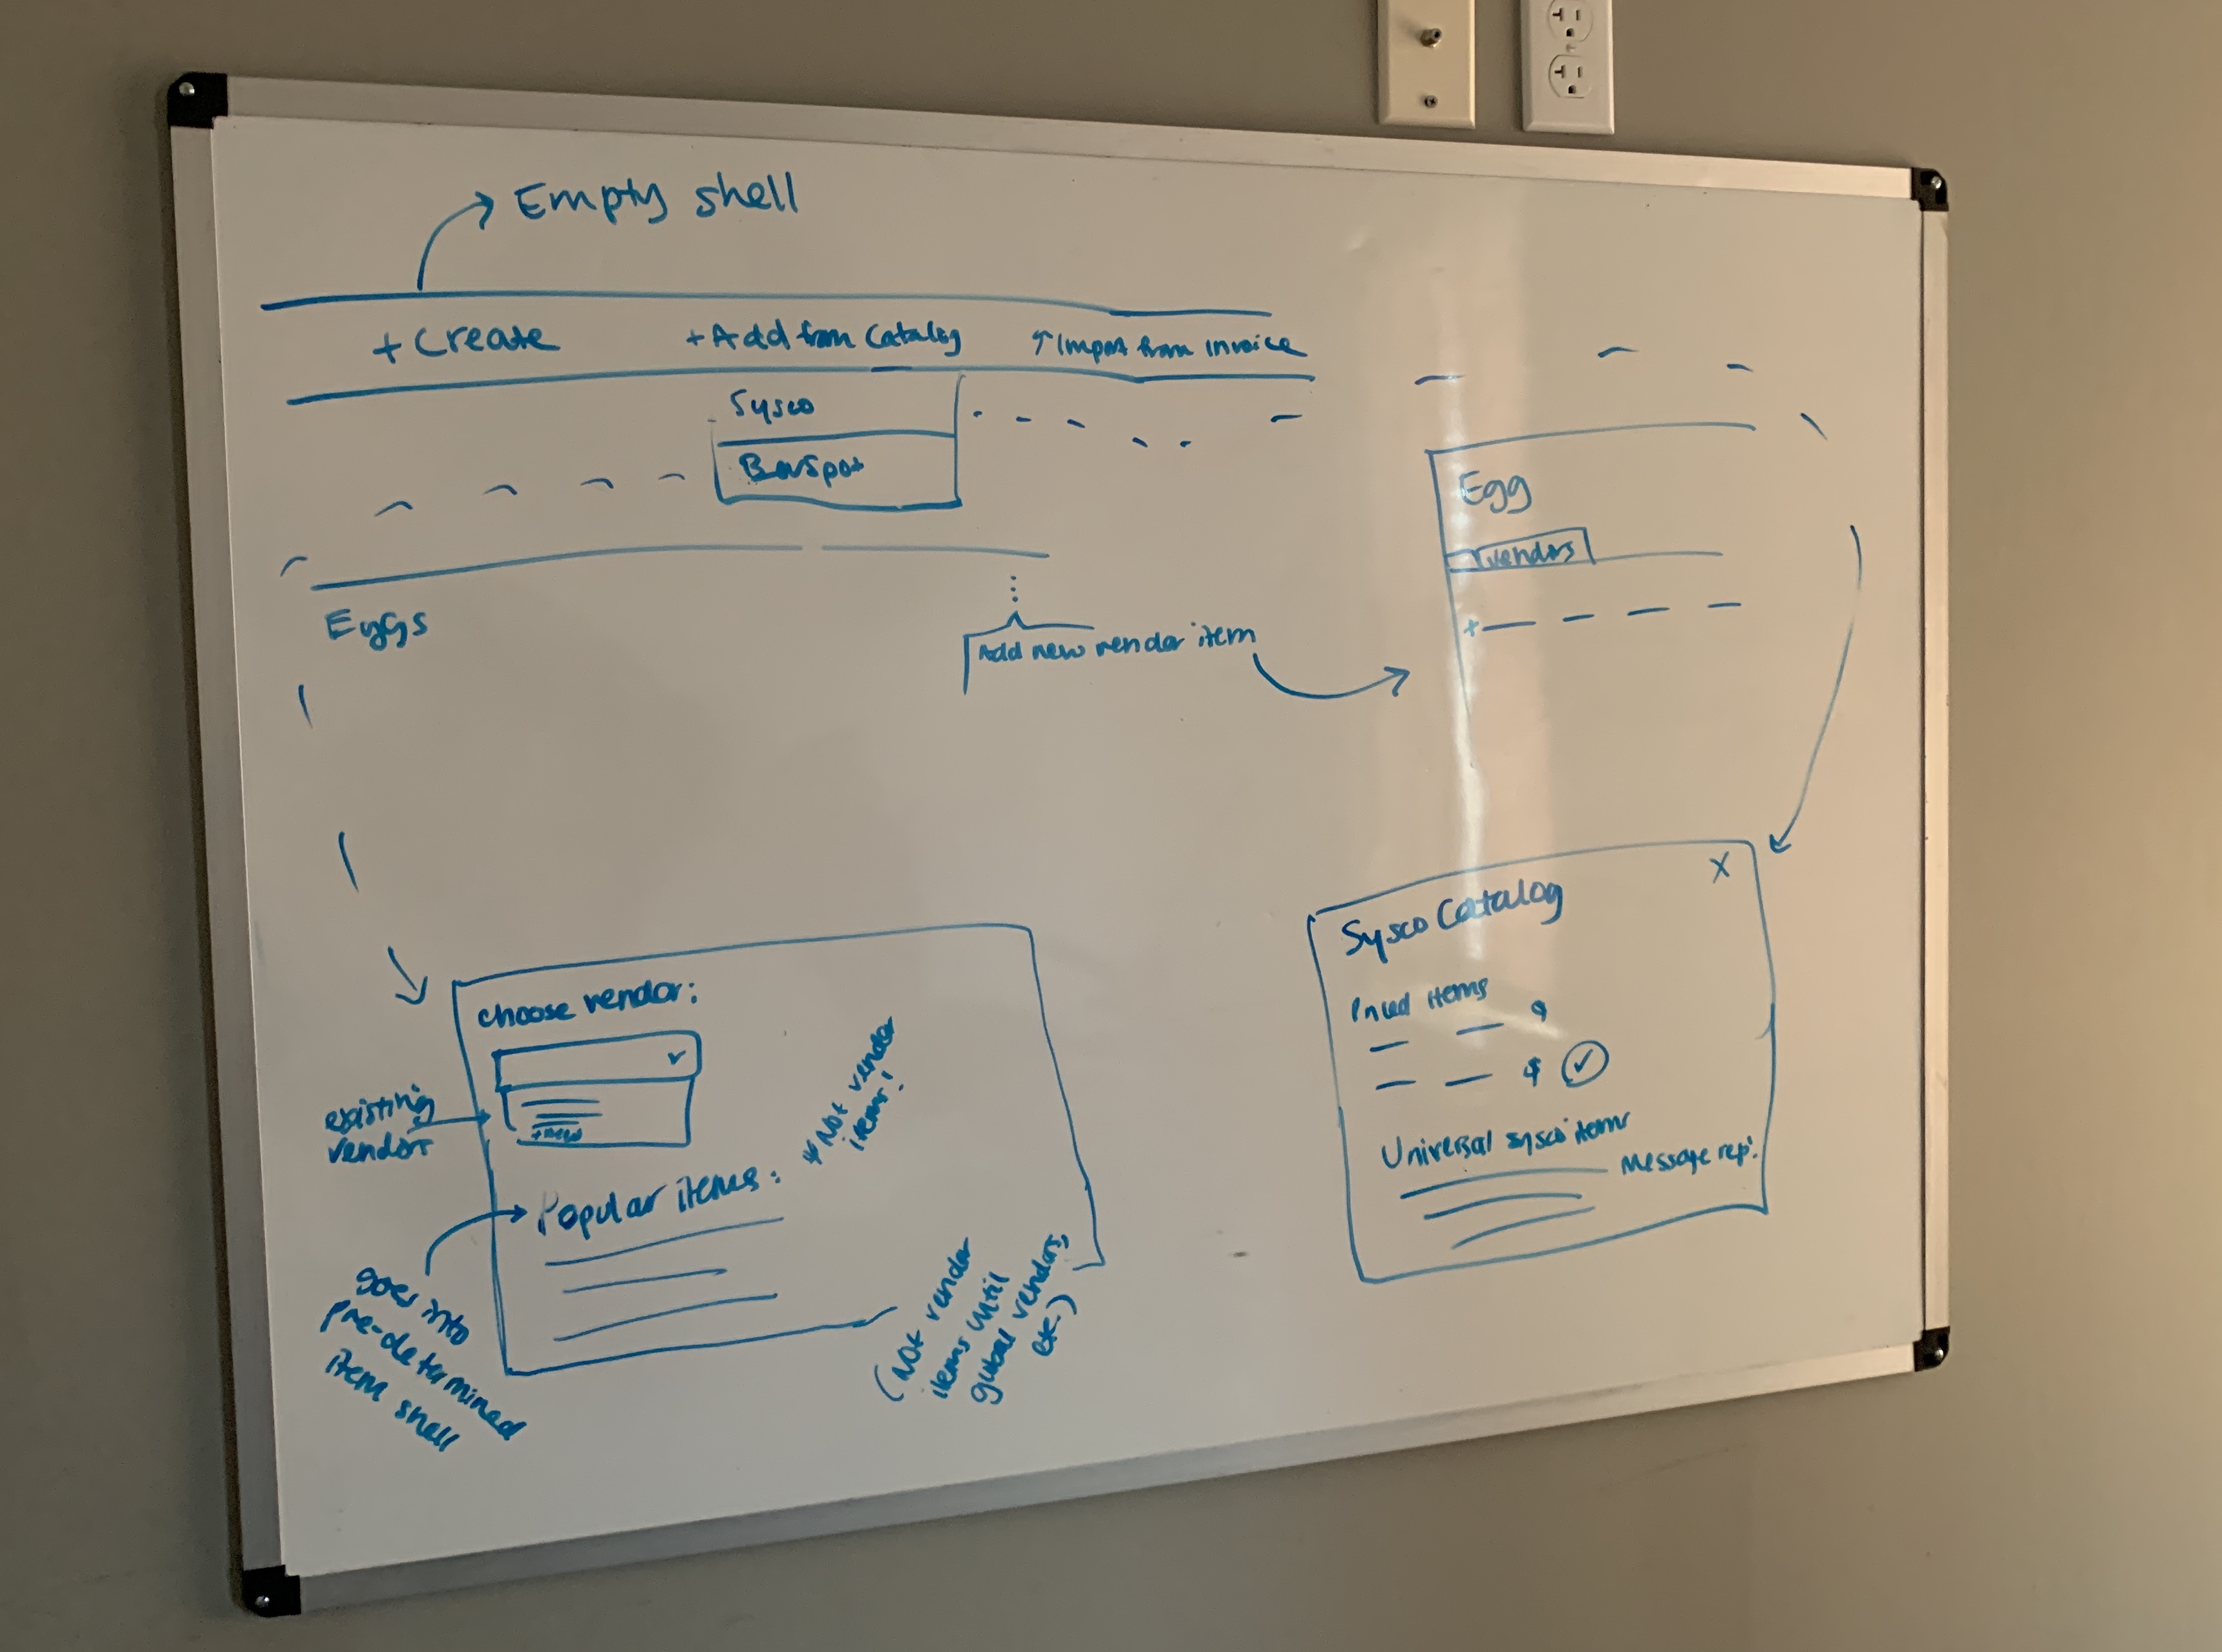 Empty shell
+ Create
+ Add from Catalog
↑ Import from invoice
Sysco
BevSpot
Eggs
Add new vendor item
Egg
vendors
+
choose vendor:
existing
vendors
+ new
* Not vendor
items!
Popular items:
Goes into
pre-determined
item shell
(Not vendor
items until
global vendors,
etc.)
Sysco Catalog
X
Priced items
$
$ ✓
Universal sysco items
Message rep!